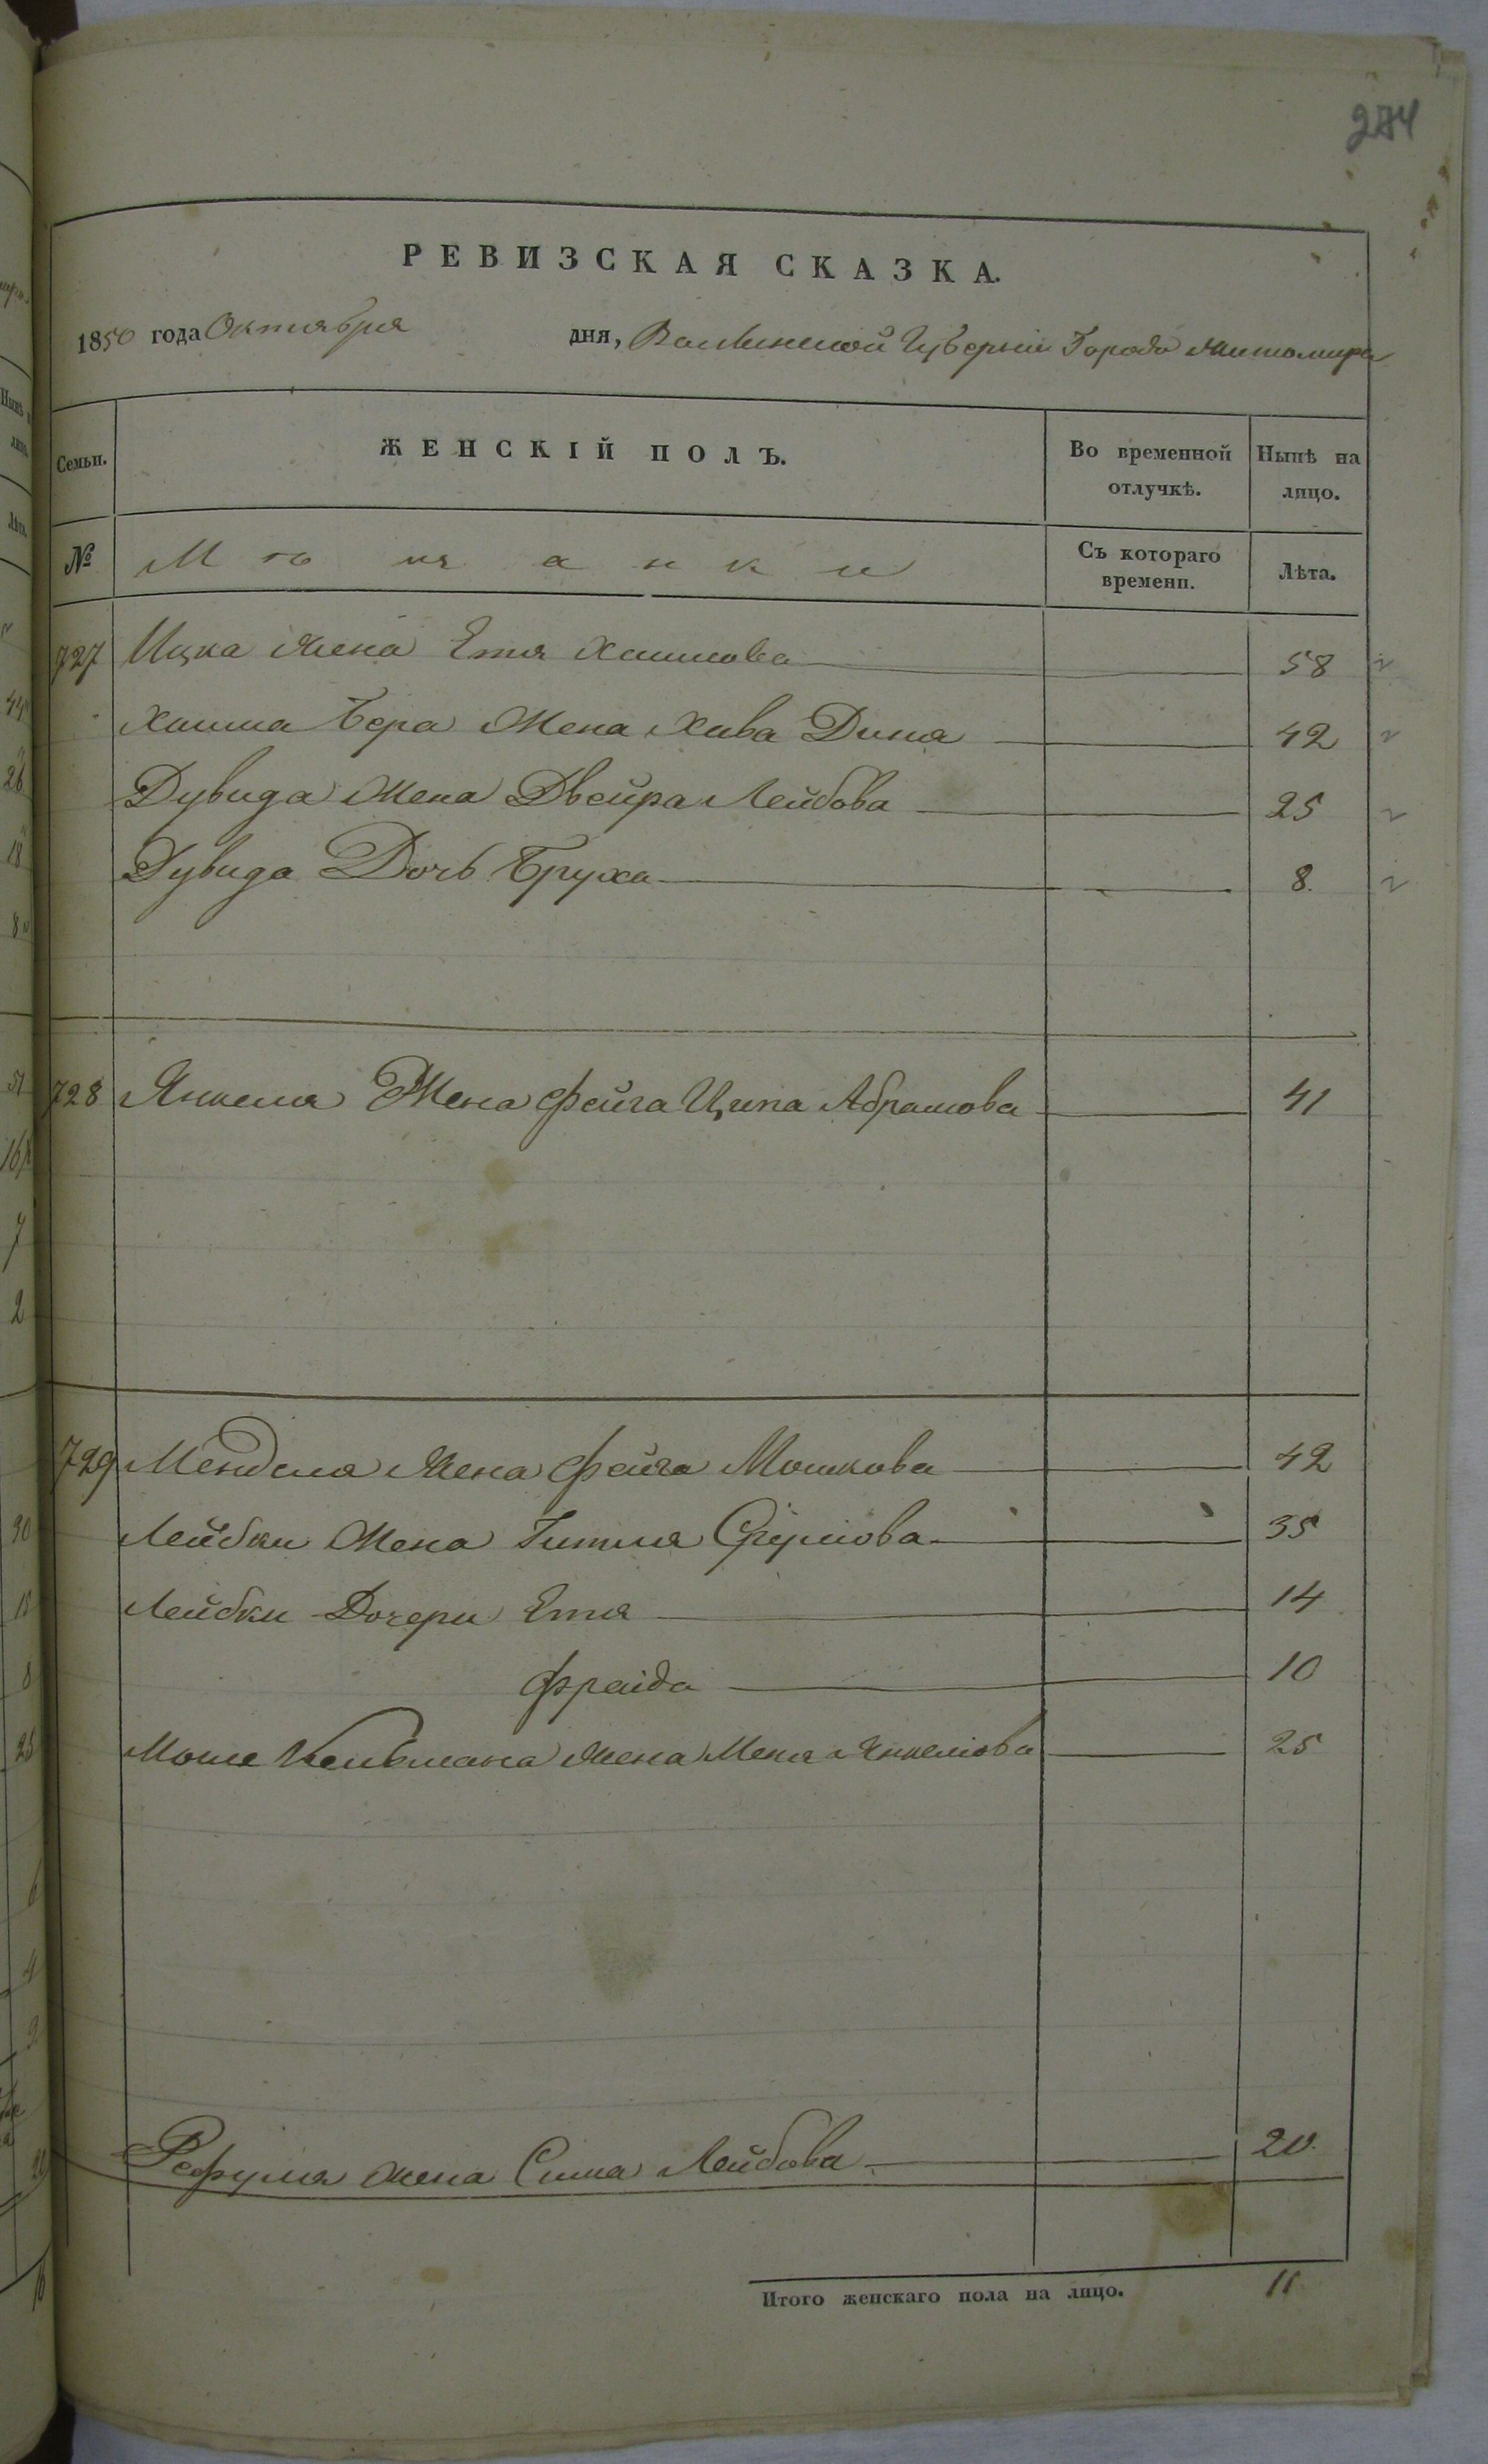 284
РЕВИЗСКАЯ СКАЗКА.
1850 года Октября дня, Волынской Губерніи Города Житомира
Семьи. ЖЕНСКІЙ ПОЛЪ. Во временной отлучкѣ. Нынѣ на лицо.
№ Мѣщанки Съ котораго времени. Лѣта.
727 Ицка Жена Етя Хаимова 58
Хаима Бера Жена Хава Дина 42
Дувида Жена Двейра Лейбова 25
Дувида Дочь Бруха 8.
728 Янкеля Жена Фейга Ципа Абрамова 41
729 Менделя Жена Фейга Мошкова 42
Лейбки Жена Гитля Срулiова 35
Лейбки Дочери Етя 14
Фраида 10
Моше Кельмана Жена Меня Янкелiова 25
Рефуля жена Сима Лейбова 20.
Итого женскаго пола на лицо. 11